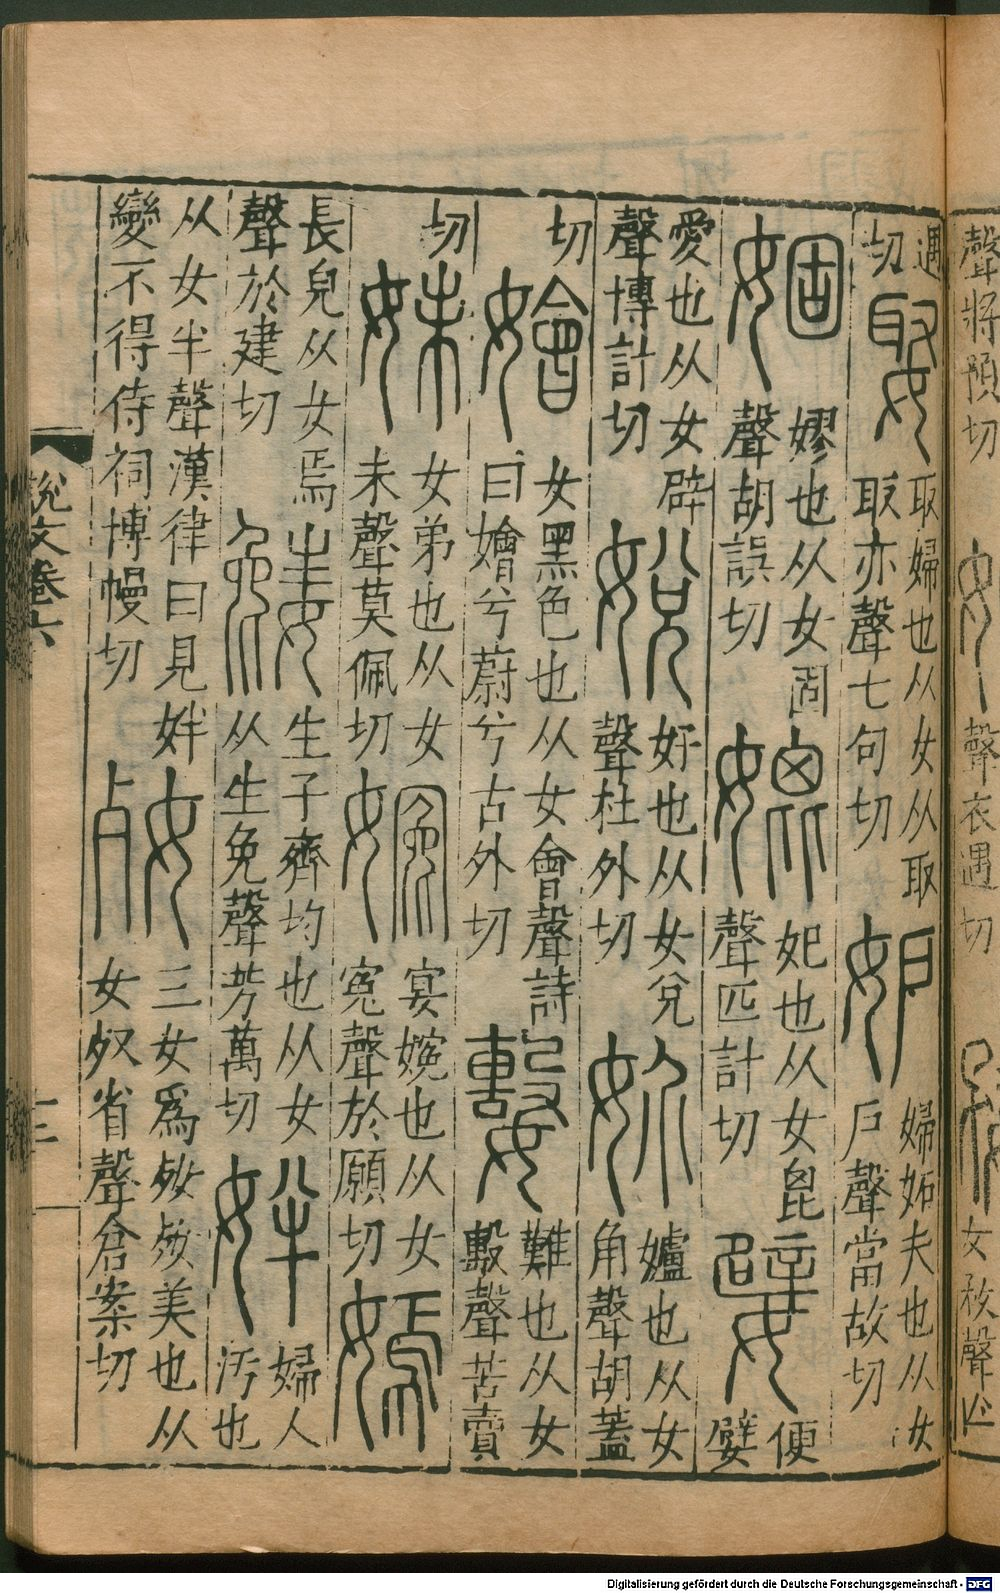 聲將預切
聲衣遇切
女敄聲亡
遇
切
娶
取婦也从女从取
取亦聲七句切
妒
婦妬夫也从女
戶聲當故切
婟
嫪也从女固
聲胡誤切
媲
妃也从女毘
聲匹計切
嬖
便
嬖
愛也从女辟
聲博計切
娧
好也从女兌
聲杜外切
妎
也从女
角聲胡蓋
切
嬒
女黑色也从女會聲詩
曰嬒兮蔚兮古外切
難也从女
毄聲苦賣
切
妹
女弟也从女
未聲莫佩切
宴婏也从女
冤聲於願切
嫣
長皃从女焉
聲於建切
嬎
生子齊均也从女
从生免聲芳萬切
姅
婦人
汚也
从女半聲漢律曰見姅
變不得侍祠博幔切
㛑
三女爲㛑㛑美也从
女𣦼省聲倉案切
說文卷六
Digitalisierung gefördert durch die Deutsche Forschungsgemeinschaft - DFG